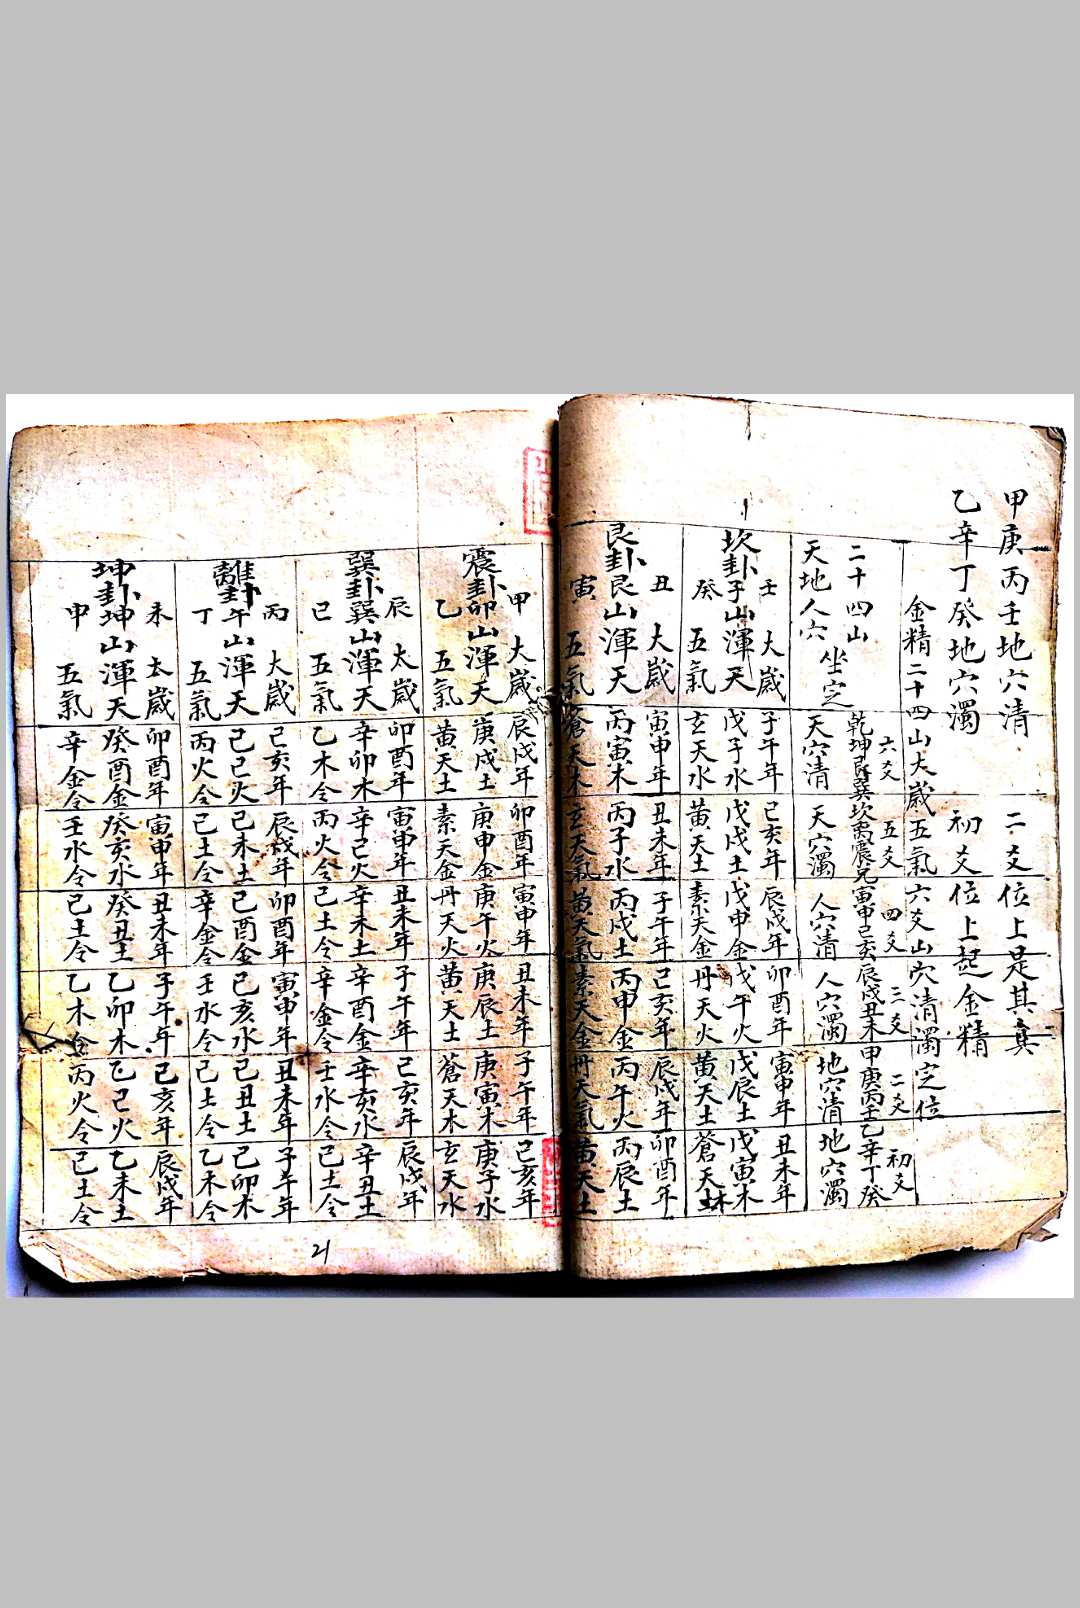 甲庚丙壬地穴清 二爻位上是其真
乙辛丁癸地穴濁 初爻位上起金精
金精二十四山大歲五氣六爻山穴清濁定位
六爻 五爻 四爻 三爻 二爻 初爻
二十四山坐定 乾坤艮巽 坎离震兌 寅申巳亥 辰戌丑未 甲庚丙壬 乙辛丁癸
天地人六 天穴清 天穴濁 人穴清 人穴濁 地穴清 地穴濁
壬 大歲 子午年 己亥年 辰戌年 卯酉年 寅申年 丑未年
坎卦子山渾天 戊子水 戊戌土 戊申金 戊午火 戊辰土 戊寅木
癸 五氣 玄天水 黄天土 素天金 丹天火 黄天土 蒼天木
丑 大歲 寅申年 丑未年 子午年 己亥年 辰戌年 卯酉年
艮卦艮山渾天 丙寅木 丙子水 丙戌土 丙申金 丙午火 丙辰土
寅 五氣 蒼天木 玄天氣 黄天氣 素天金 丹天氣 黄天土
甲 大歲 辰戌年 卯酉年 寅申年 丑未年 子午年 己亥年
震卦卯山渾天 庚戌土 庚申金 庚午火 庚辰土 庚寅木 庚子水
乙 五氣 黄天土 素天金 丹天火 黄天土 蒼天木 玄天水
辰 太歲 卯酉年 寅申年 丑未年 子午年 己亥年 辰戌年
巽卦巽山渾天 辛卯木 辛己火 辛未土 辛酉金 辛亥水 辛丑土
巳 五氣 乙木令 丙火令 己土令 辛金令 壬水令 己土令
丙 大歲 己亥年 辰戌年 卯酉年 寅申年 丑未年 子午年
離卦午山渾天 己己火 己未土 己酉金 己亥水 己丑土 己卯木
丁 五氣 丙火令 己土令 辛金令 壬水令 己土令 乙木令
未 太歲 卯酉年 寅申年 丑未年 子午年 己亥年 辰戌年
坤卦坤山渾天 癸酉金 癸亥水 癸丑土 乙卯木 乙己火 乙未土
申 五氣 辛金令 壬水令 己土令 乙木金 丙火令 己土令
21